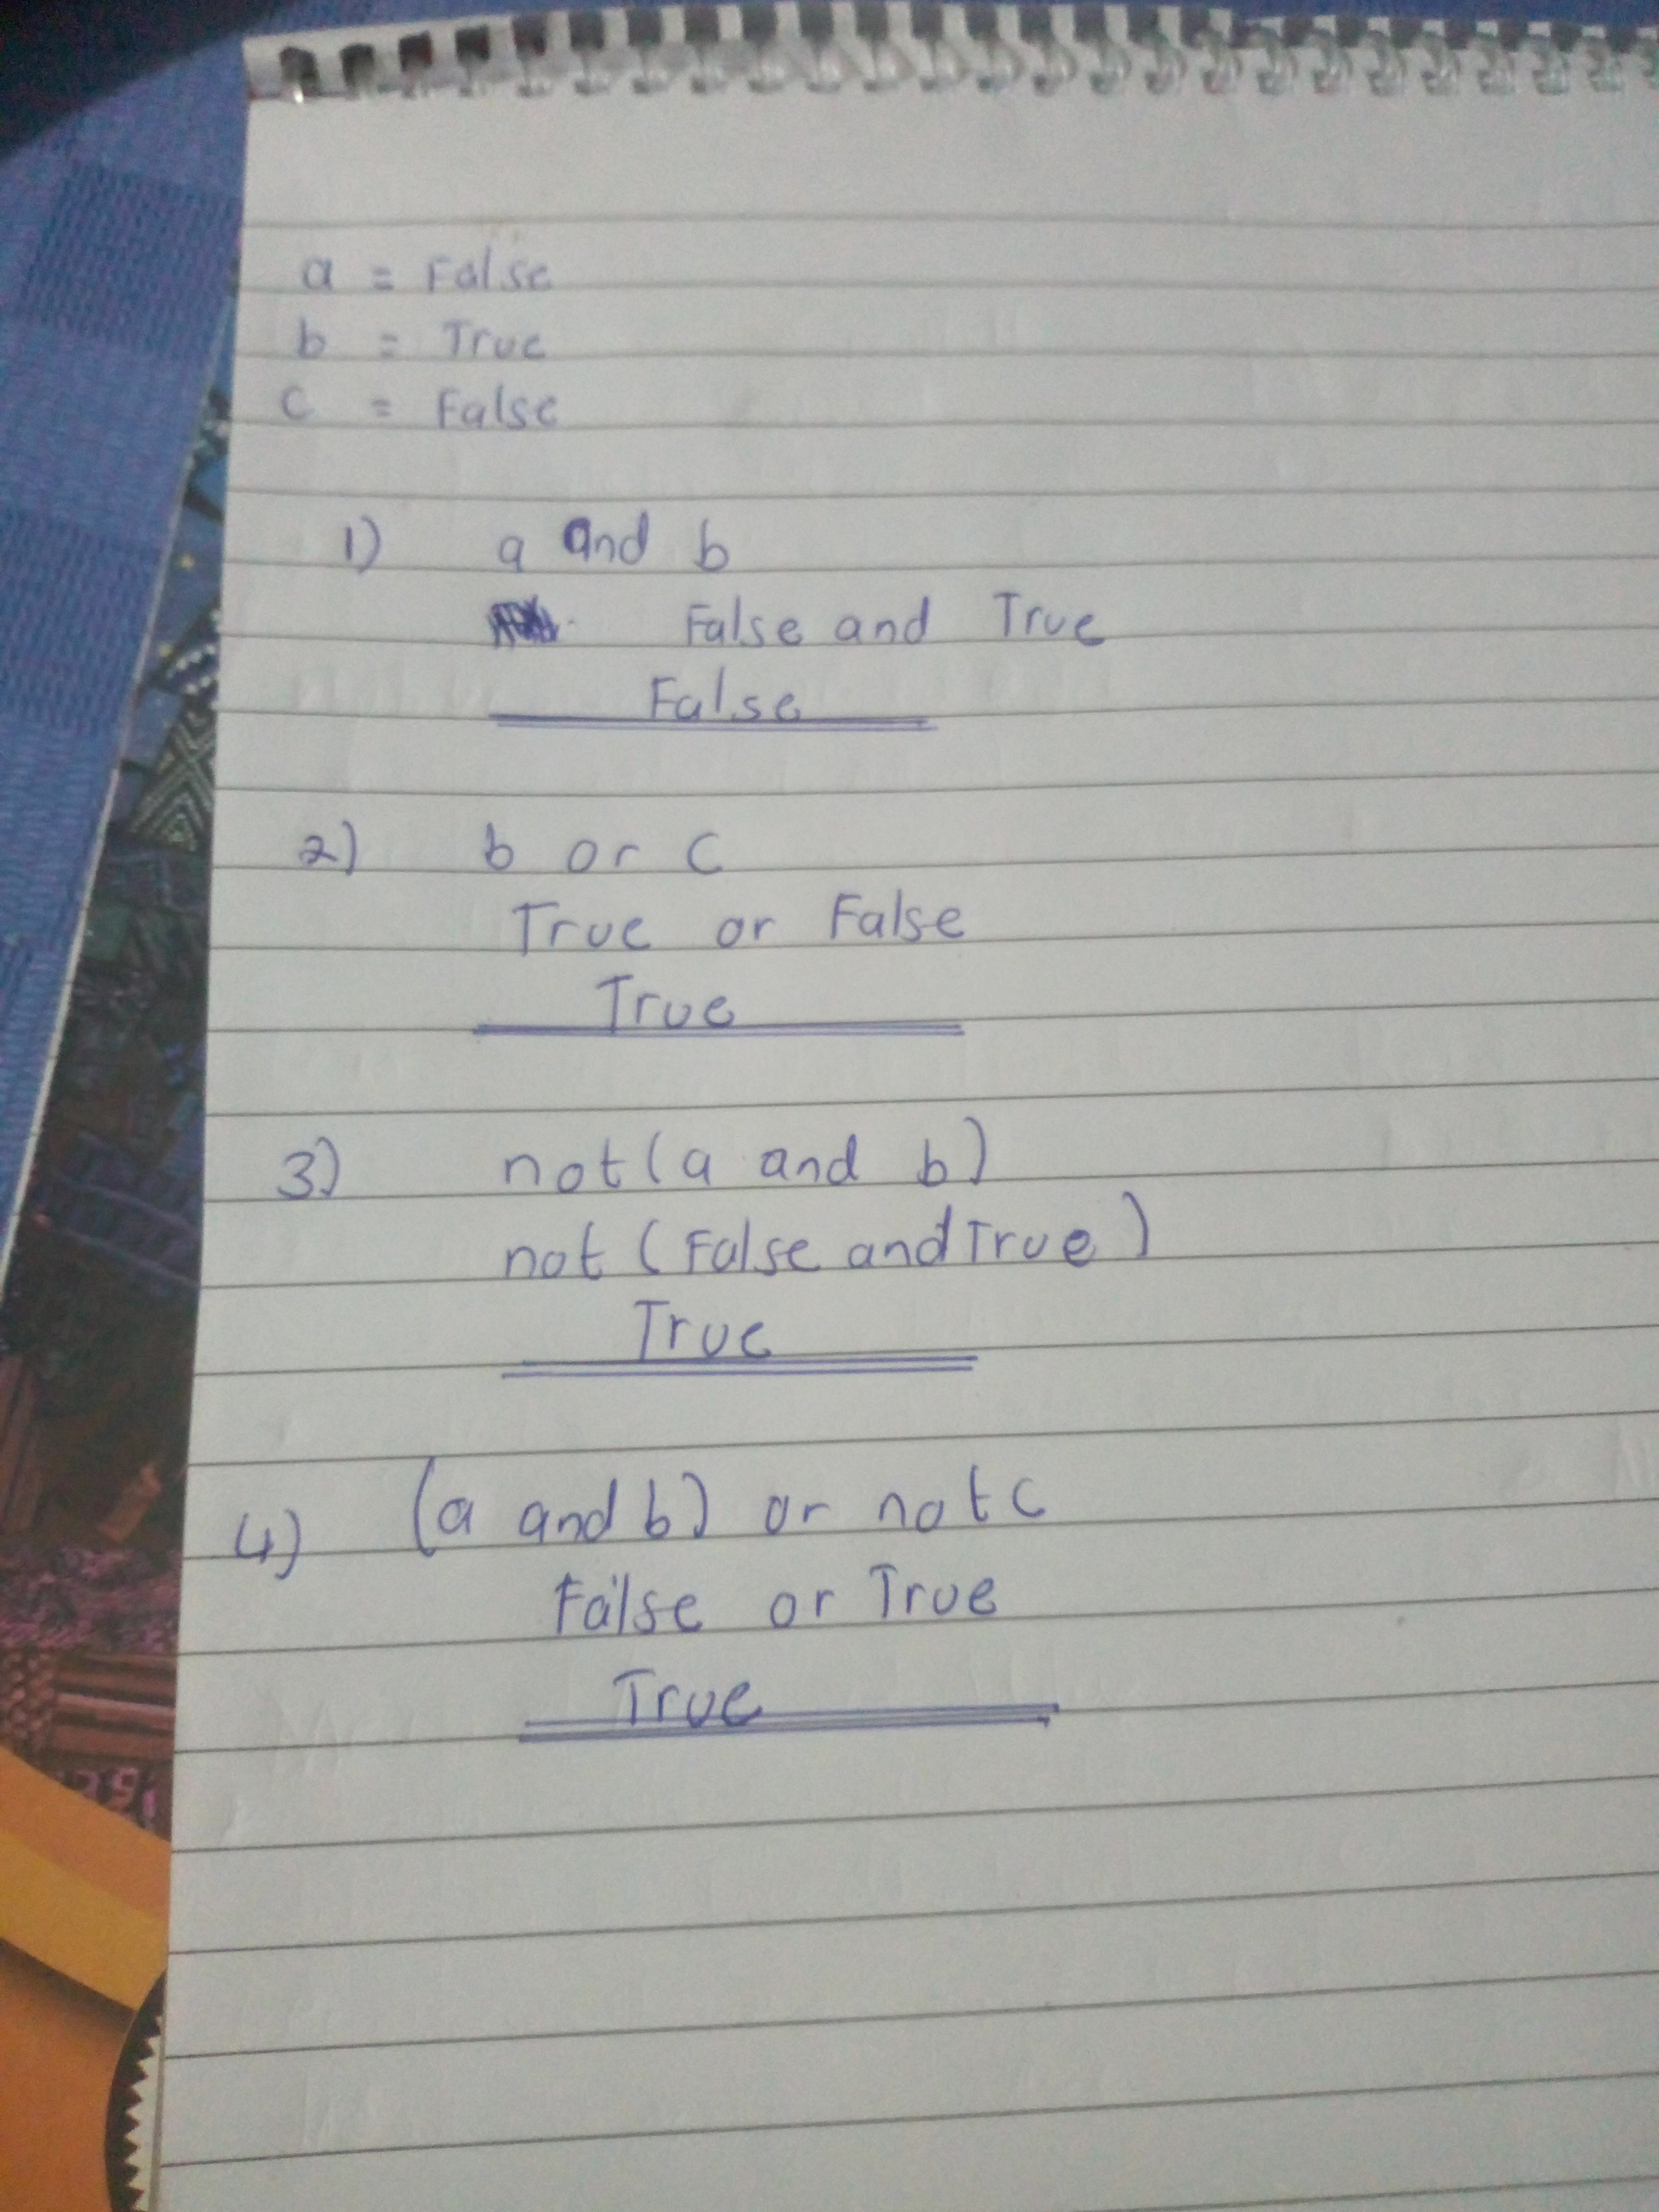 a = False
b = True
c = False
1) a and b
False and True
False
2) b or c
True or False
True
3) not (a and b)
not (False and True)
True
4) (a and b) or not c
False or True
True